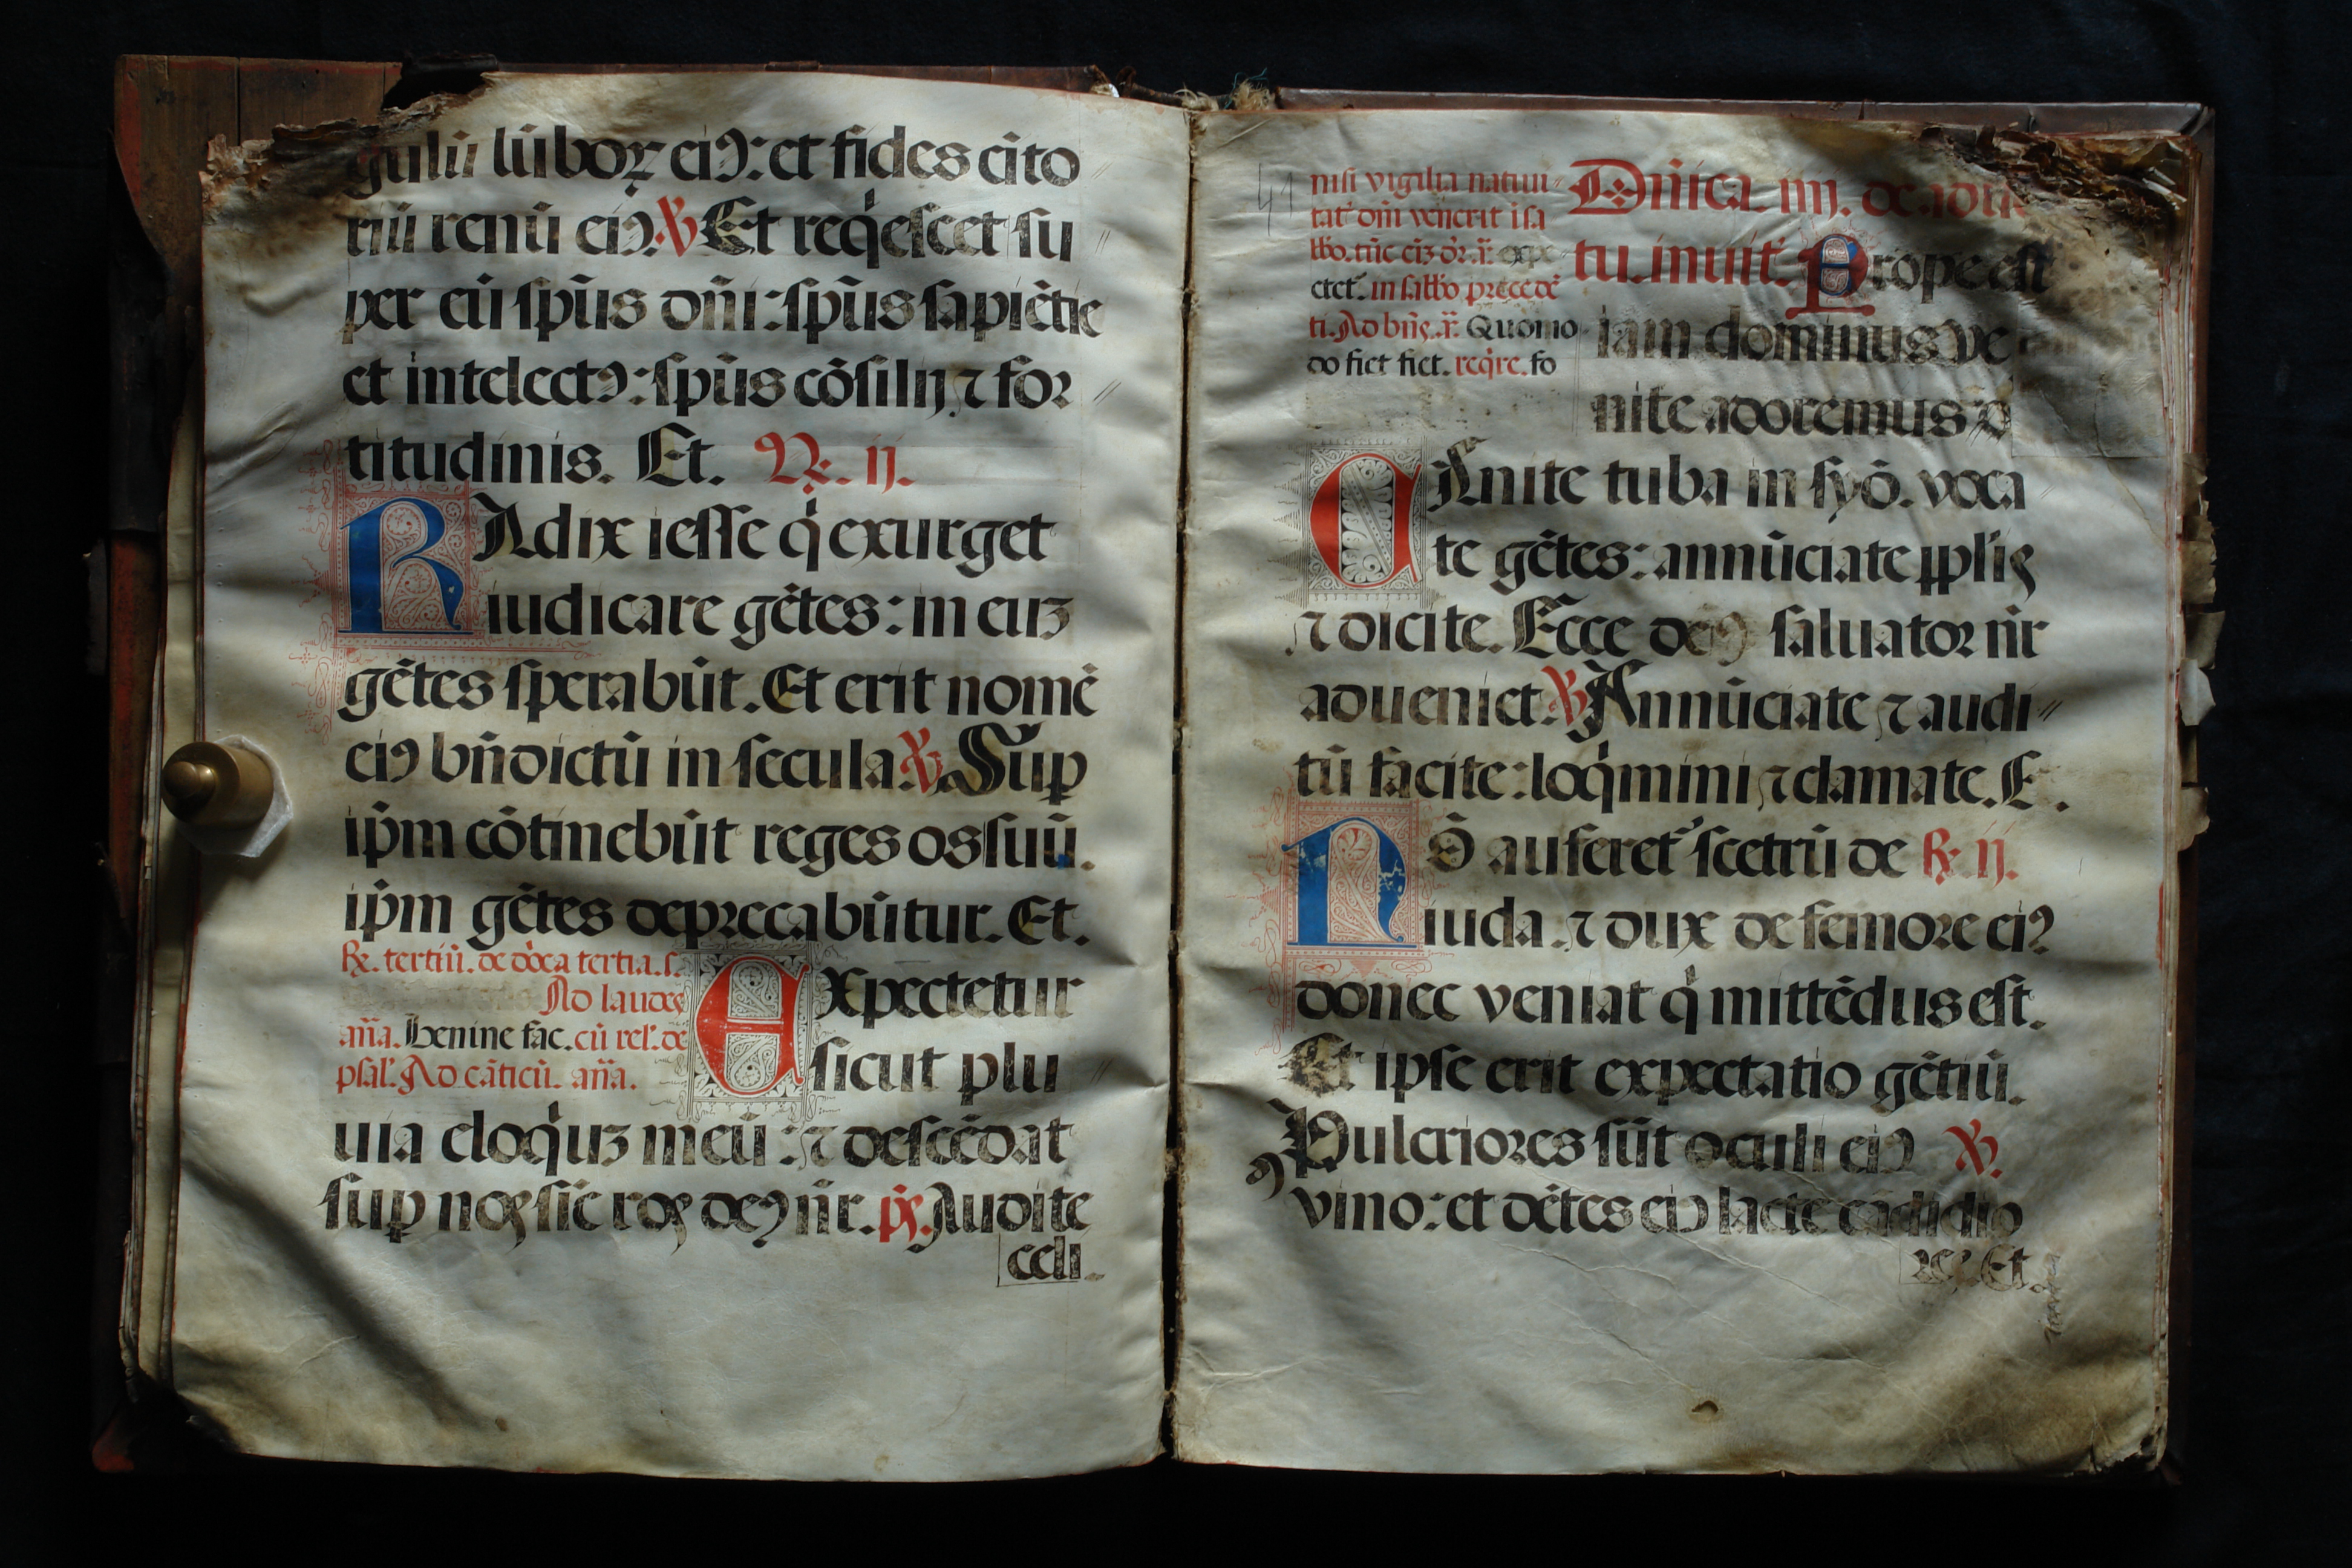 gulū lūboꝝ eiꝰ: et fides cīto
riū renū eiꝰ. ℣ Et reqͥescet su
per eū sp̄us dn̄i: sp̄us sapiētie
et intelectꝰ: sp̄us cōsilij ⁊ for
titudinis. Et. ℞. ij.
RAdix iesse qͥ exurget
iudicare gētes: in euꝫ
gētes sperabūt. Et erit nomē
eiꝰ bn̄dictū in secula ℣ Suꝑ
ip̄m cōtinebūt reges os suū.
ip̄m gētes deprecabūtur. Et.
℞. tertiū. de dn̄ca tertia. s.
Ad laudes
an̄a. Benine fac. cū rel'. de
psal'. Ad cāticū. an̄a.
EXpectetur
sicut plu
uia eloqͥuꝫ meū: ⁊ descēdat
suꝑ nos sic ros deꝰ nr̄. ps. Audite
celi.
41
nisi vigilia natiui
tat' dn̄i venerit ī sa
bbo. tūc eiꝫ
etet'. in sabbo precedē
ti. Ad bn̄s. an̄. Quomo
do fiet fiet. reqͥre. fo
Dn̄ica. iiij. de adue
tu. inuit'. Prope est
iam dominus ve
nite adoremus
CAnite tuba in syō. voca
te gētes: annūciate pplis
⁊ dicite. Ecce deꝰ saluator nr̄
adueniet. ℣ Annūciate ⁊ audi
tū facite: loqͥmini ⁊ clamate. E.
NŌ auferet' scetrū de ℞. ij.
iuda. ⁊ dux de femore eiꝰ
donec veniat qͥ mittēdus est.
Et ipse erit expectatio gētiū.
Pulcriores sūt oculi eiꝰ ℣.
vino: et dētes eiꝰ lacte cādidio
res. Et.